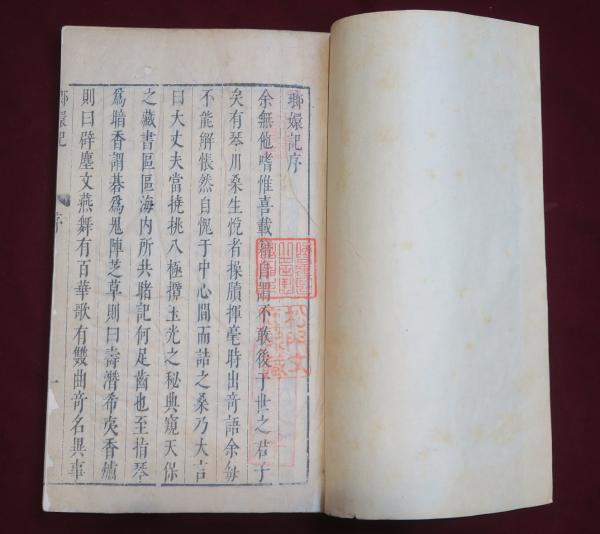 瑯嬛記序
余無他嗜惟喜載籍自謂不敢後于世之君子
矣有琴川桑生悅者操牘揮毫時出竒語余每
不能解悵然自愧于中心間而詰之桑乃大言
曰大丈夫當撓挑八極攬玉光之秘典窺天保
之藏書區區海内所共睹記何足齒也至指琴
為暗香謂碁為鬼陣芝草則曰壽潛希夷香爐
則曰辟塵文燕舞有百華歌有雙曲竒名異事
瑯嬛記
序
一